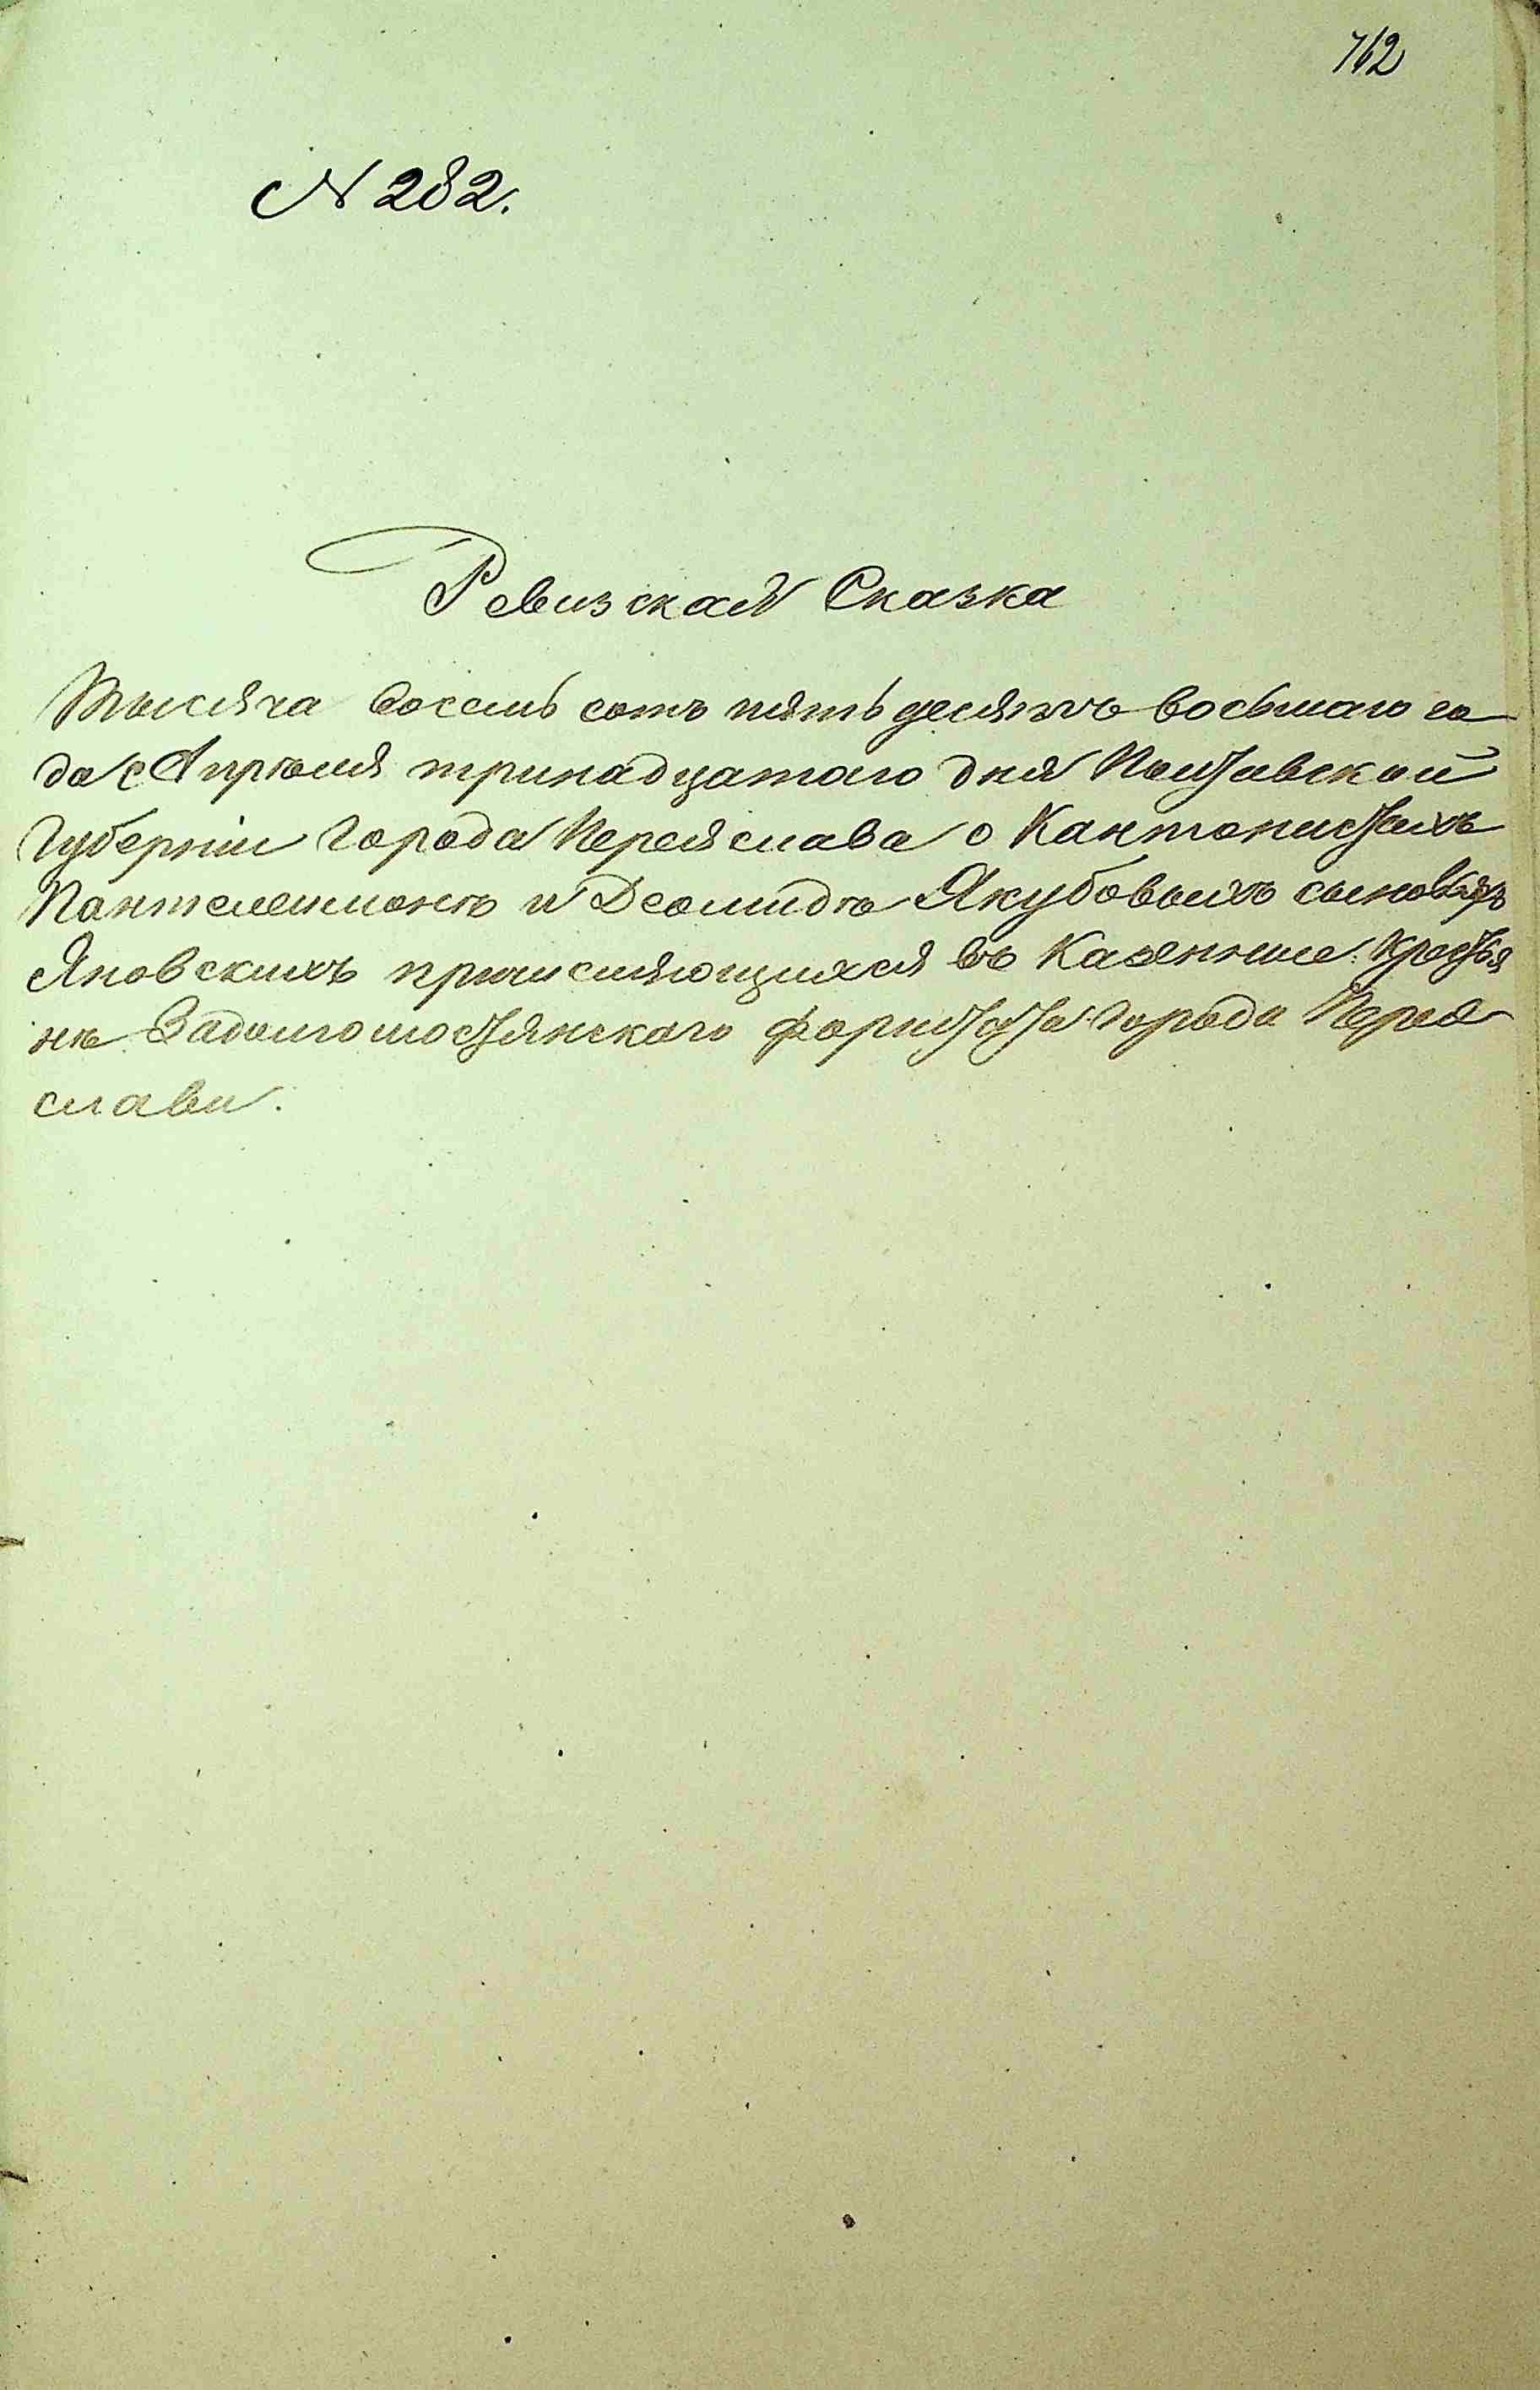 712
№ 282.
Ревизская Сказка
Тысяча восемь сотъ пять десятъ восьмаго го
да Апрѣля тринадцатаго дня Полтавской
Губерніи города Переяслава о Кантонистахъ
Пантелеимонѣ и Деомидѣ Якубовыхъ сыновьяхъ
Яновскихъ причисляющихся въ Казенные Крестья
не Задолгомостянскаго форштата города Перея
слава.